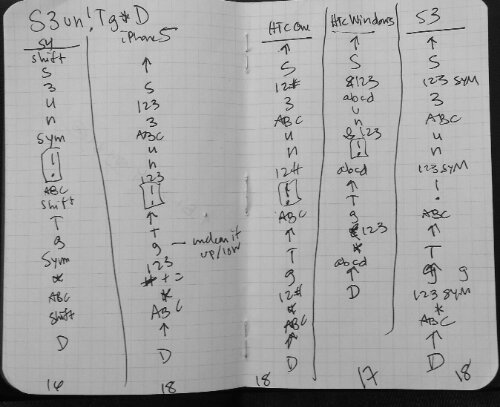 S3un!Tg*D
sy
shift
S
3
u
n
sym
!
.
ABC
shift
T
g
Sym
*
ABC
shift
D
16
iPhone 5
↑
S
123
3
ABC
u
n
123
!
↑
T
g — unclear if
up/low
123
#+=
*
ABC
↑
D
18
HTC One
↑
S
12#
3
ABC
u
n
12#
!
ABC
↑
T
g
12#
*
ABC
↑
D
18
HTC Windows
↑
S
&123
abcd
u
n
&123
!
abcd
↑
T
g
&123
*
abcd
↑
D
17
S3
↑
S
123 SYM
3
ABC
u
n
123 SYM
!
ABC
↑
T
g g
123 SYM
*
ABC
↑
D
18